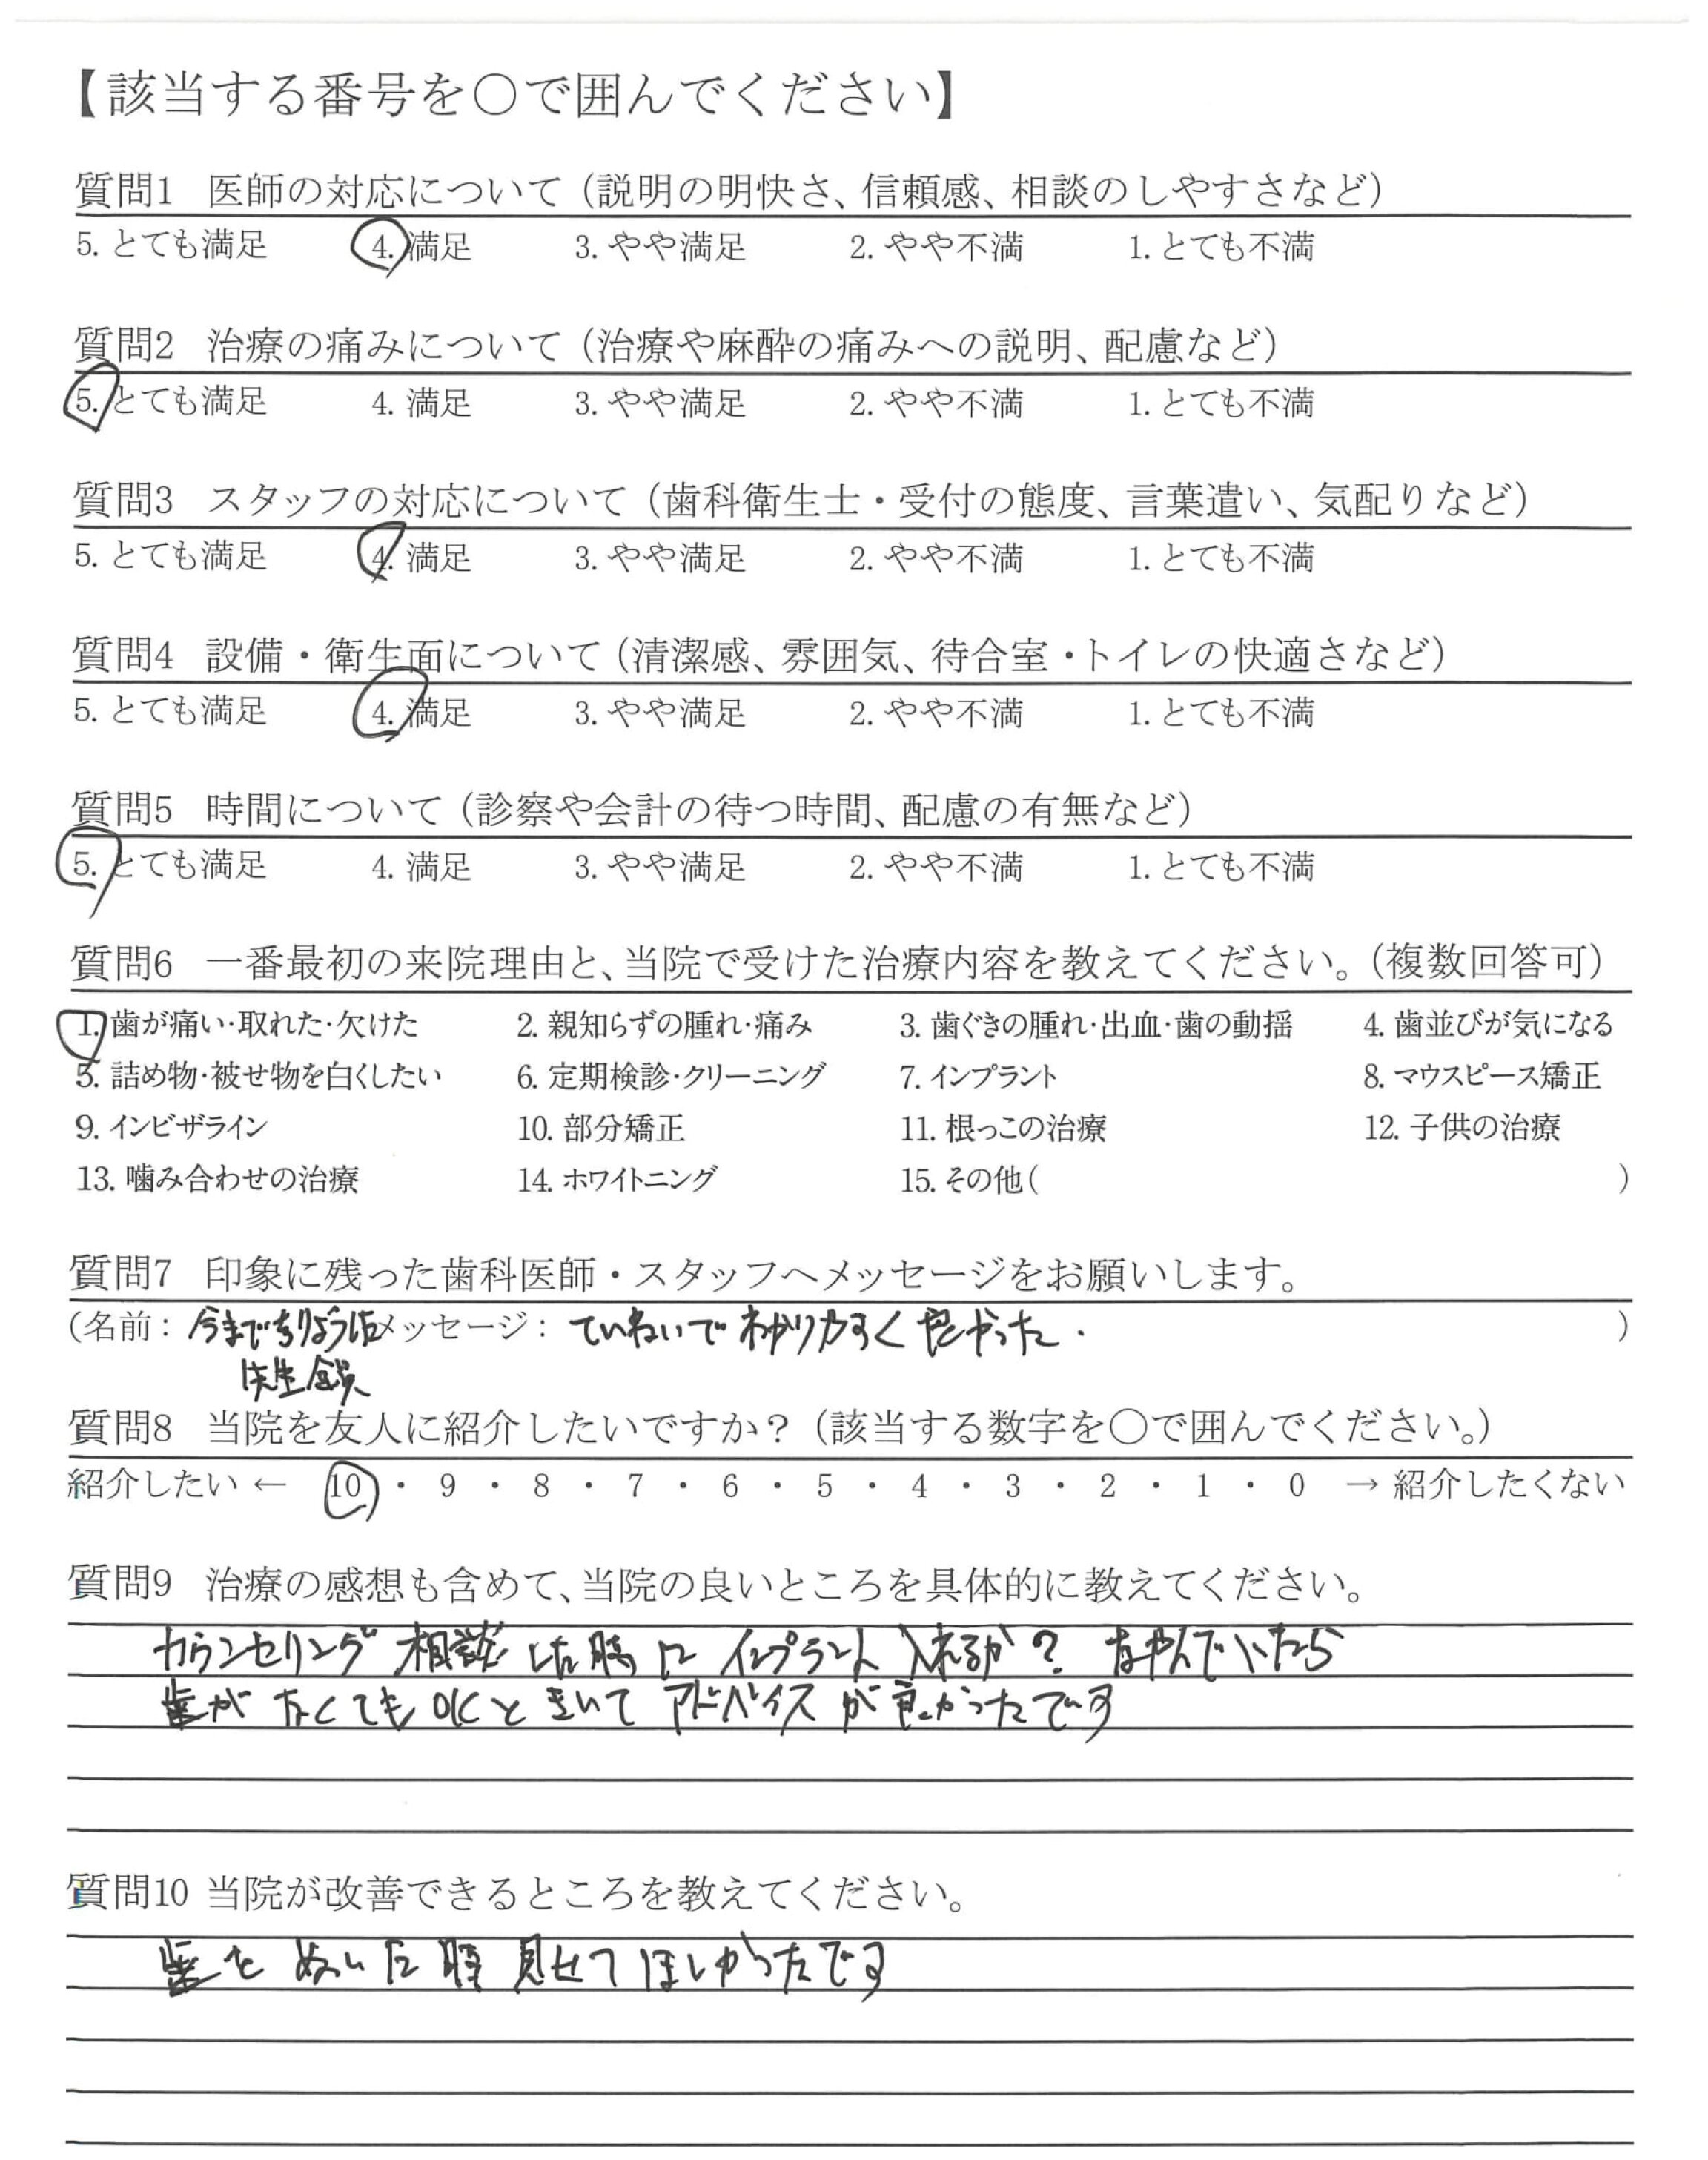 【該当する番号を○で囲んでください】
質問1 医師の対応について（説明の明快さ、信頼感、相談のしやすさなど）
5. とても満足 4. 満足 3. やや満足 2. やや不満 1. とても不満
質問2 治療の痛みについて（治療や麻酔の痛みへの説明、配慮など）
5. とても満足 4. 満足 3. やや満足 2. やや不満 1. とても不満
質問3 スタッフの対応について（歯科衛生士・受付の態度、言葉遣い、気配りなど）
5. とても満足 4. 満足 3. やや満足 2. やや不満 1. とても不満
質問4 設備・衛生面について（清潔感、雰囲気、待合室・トイレの快適さなど）
5. とても満足 4. 満足 3. やや満足 2. やや不満 1. とても不満
質問5 時間について（診察や会計の待つ時間、配慮の有無など）
5. とても満足 4. 満足 3. やや満足 2. やや不満 1. とても不満
質問6 一番最初の来院理由と、当院で受けた治療内容を教えてください。（複数回答可）
1. 歯が痛い・取れた・欠けた 2. 親知らずの腫れ・痛み 3. 歯ぐきの腫れ・出血・歯の動揺 4. 歯並びが気になる
5. 詰め物・被せ物を白くしたい 6. 定期検診・クリーニング 7. インプラント 8. マウスピース矯正
9. インビザライン 10. 部分矯正 11. 根っこの治療 12. 子供の治療
13. 噛み合わせの治療 14. ホワイトニング 15. その他（ ）
質問7 印象に残った歯科医師・スタッフへメッセージをお願いします。
（名前： 今までちりょうした メッセージ： ていねいでわかりやすく良かった. ）
先生全員
質問8 当院を友人に紹介したいですか？（該当する数字を○で囲んでください。）
紹介したい ← 10 ・ 9 ・ 8 ・ 7 ・ 6 ・ 5 ・ 4 ・ 3 ・ 2 ・ 1 ・ 0 → 紹介したくない
質問9 治療の感想も含めて、当院の良いところを具体的に教えてください。
カウンセリング相談した時にインプラント入れるか？なやんでいたら
歯がなくてもOKときいてアドバイスが良かったです
質問10 当院が改善できるところを教えてください。
歯をぬいた時見せてほしかったです